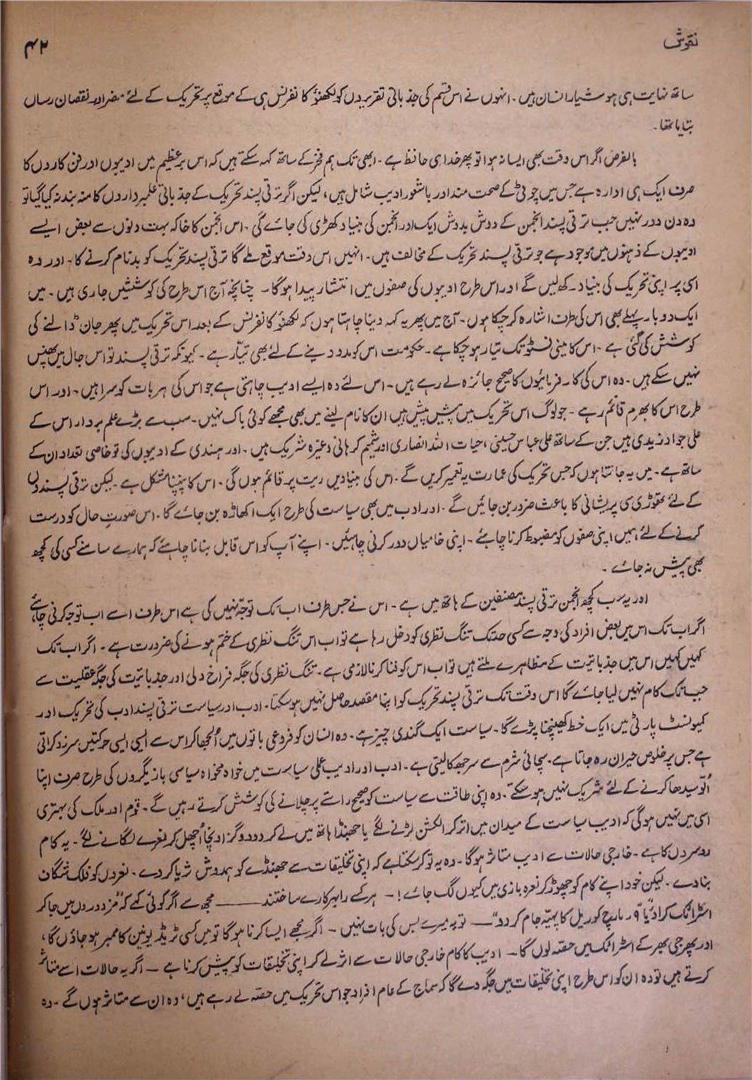 نقوش
۴۲
ساتھ نہایت ہی ہوشیار انسان ہیں ۔ انہوں نے اس قسم کی جذباتی تقریروں کو لکھنؤ کانفرنس ہی کے موقع پر تحریک کے لئے مضر اور نقصان رساں
بتایا تھا ۔
بالفرض اگر اس وقت بھی ایسا نہ ہوا تو پھر خدا ہی حافظ ہے ۔ ابھی تک ہم فخر کے ساتھ کہہ سکتے ہیں کہ اس برعظیم میں ادیبوں اور فن کاروں کا
صرف ایک ہی ادارہ ہے جس میں چوٹی کے صحت مند اور باشعور ادیب شامل ہیں ، لیکن اگر ترقی پسند تحریک کے جذباتی علمبرداروں کا منہ بند نہ کیا گیا تو
وہ دن دور نہیں جب ترقی پسند انجمن کے دوش بدوش ایک اور انجمن کی بنیاد کھڑی کی جائے گی ۔ اس انجمن کا خاکہ بہت دنوں سے بعض ایسے
ادیبوں کے ذہنوں میں موجود ہے جو ترقی پسند تحریک کے مخالف ہیں ۔ انہیں اس وقت موقع ملے گا ترقی پسند تحریک کو بدنام کرنے کا ۔ اور وہ
اسی پر اپنی تحریک کی بنیاد رکھ لیں گے اور اس طرح ادیبوں کی صفوں میں انتشار پیدا ہوگا ۔ چنانچہ آج اس طرح کی کوششیں جاری ہیں ۔ میں
ایک دو بار پہلے بھی اس کی طرف اشارہ کر چکا ہوں ۔ آج میں پھر یہ کہہ دینا چاہتا ہوں کہ لکھنؤ کانفرنس کے بعد اس تحریک میں پھر جان ڈالنے کی
کوشش کی گئی ہے ۔ اس کا مینی فسٹو تک تیار ہو چکا ہے ۔ حکومت اس کو مدد دینے کے لئے بھی تیار ہے ۔ کیونکہ ترقی پسند تو اس جال میں پھنس
نہیں سکے ہیں ۔ وہ اس کی کارفرمائیوں کا صحیح جائزہ لے رہے ہیں ۔ اس لئے وہ ایسے ادیب چاہتی ہے جو اس کی ہر بات کو سراہیں ۔ اور اس
طرح اس کا بھرم قائم رہے ۔ جو لوگ اس تحریک میں پیش پیش ہیں ان کا نام لینے میں بھی مجھے کوئی باک نہیں ۔ سب سے بڑے علم بردار اس کے
علی جواد زیدی ہیں جن کے ساتھ علی عباس حسینی ، حیات اللہ انصاری اور شمیم کرہانی وغیرہ شریک ہیں ۔ اور ہندی کے ادیبوں کی تو خاصی تعداد ان کے
ساتھ ہے ۔ میں یہ جانتا ہوں کہ جس تحریک کی عمارت یہ تعمیر کریں گے ۔ اس کی بنیادیں ریت پر قائم ہوں گی ۔ اس کا پنپنا مشکل ہے ۔ لیکن ترقی پسندوں
کے لئے تھوڑی سی پریشانی کا باعث ضرور بن جائیں گے ۔ اور ادب میں بھی سیاست کی طرح ایک اکھاڑہ بن جائے گا ۔ اس صورت حال کو درست
کرنے کے لئے ہمیں اپنی صفوں کو مضبوط کرنا چاہئے ۔ اپنی خامیاں دور کرنی چاہئیں ۔ اپنے آپ کو اس قابل بنانا چاہئے کہ ہمارے سامنے کسی کی کچھ
بھی پیش نہ جائے ۔
اور یہ سب کچھ انجمن ترقی پسند مصنفین کے ہاتھ میں ہے ۔ اس نے جس طرف اب تک توجہ نہیں کی ہے اس طرف اسے اب توجہ کرنی چاہئے
اگر اب تک اس میں بعض افراد کی وجہ سے کسی حد تک تنگ نظری کو دخل رہا ہے تو اب اس تنگ نظری کے ختم ہونے کی ضرورت ہے ۔ اگر اب تک
کہیں کہیں اس میں جذباتیت کے مظاہرے ملتے ہیں تو اب اس کو فنا کرنا لازمی ہے ۔ تنگ نظری کی جگہ فراخ دلی اور جذباتیت کی جگہ عقلیت سے
جب تک کام نہیں لیا جائے گا اس وقت تک ترقی پسند تحریک کو اپنا مقصد حاصل نہیں ہو سکتا ۔ ادب اور سیاست ترقی پسند ادب کی تحریک اور
کمیونسٹ پارٹی میں ایک خط کھینچنا پڑے گا ۔ سیاست ایک گندی چیز ہے ۔ وہ انسان کو فروعی باتوں میں الجھا کر اس سے ایسی ایسی حرکتیں سرزد کراتی
ہے جس پر خلوص حیران رہ جاتا ہے ۔ سچائی شرم سے سر جھکا لیتی ہے ۔ ادب اور ادیب عملی سیاست میں خواہ مخواہ سیاسی بازیگروں کی طرح صرف اپنا
الو سیدھا کرنے کے لئے شریک نہیں ہو سکتے ۔ وہ اپنی طاقت سے سیاست کو صحیح راستے پر چلانے کی کوشش کرتے رہیں گے ۔ قوم اور ملک کی بہتری
اسی میں نہیں ہوگی کہ ادیب سیاست کے میدان میں اتر کر الکشن لڑنے لگے یا جھنڈا ہاتھ میں لے کر دو دو گز اونچا اچھل کر نعرے لگانے لگے ۔ یہ کام
دوسروں کا ہے ۔ خارجی حالات سے ادیب متاثر ہوگا ۔ وہ یہ تو کر سکتا ہے کہ اپنی تخلیقات سے جھنڈے کو ہمدوش ثریا کر دے ۔ نعروں کو فلک شگاف
بنا دے ۔ لیکن خود اپنے کام کو چھوڑ کر نعرہ بازی میں کیوں لگ جائے ! ۔ ہر کے را بہر کارے ساختند ــــــ مجھ سے اگر کوئی کہے کہ "مزدوروں میں جا کر
اسٹرائک کرادو" یا "۹ مارچ کو ریل کا پہیہ جام کر دو" ــــ تو یہ میرے بس کی بات نہیں ۔ اگر مجھے ایسا کرنا ہوگا تو میں کسی ٹریڈ یونین کا ممبر ہو جاؤں گا ،
اور پھر جی بھر کے اسٹرائک میں حصہ لوں گا ۔ ادیب کا کام خارجی حالات سے اثر لے کر اپنی تخلیقات کو پیش کرنا ہے ۔ اگر یہ حالات اسے متاثر
کرتے ہیں تو وہ ان کو اس طرح اپنی تخلیقات میں جگہ دے گا کہ سماج کے عام افراد جو اس تحریک میں حصہ لے رہے ہیں ، وہ ان سے متاثر ہوں گے ۔ وہ